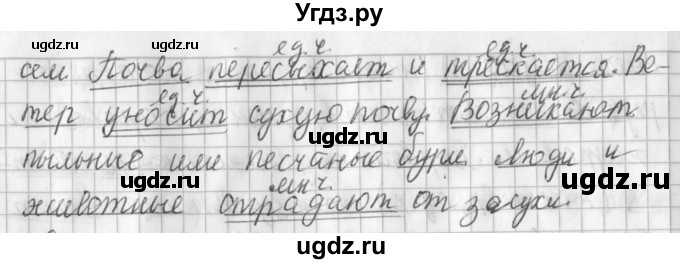 Угдз.ру
ugdz.ru ед.ч. ugdz.ru ед.ч. ugdz.ru
сем. Почва пересыхает и трескается. Ве-
ед.ч. мн.ч.
тер уносит сухую почву. Возникают
ugdz.ru ugdz.ru
пыльные или песчаные бури. Люди и
мн.ч.
животные страдают от засухи.
ugdz.ru ugdz.ru ugdz.ru